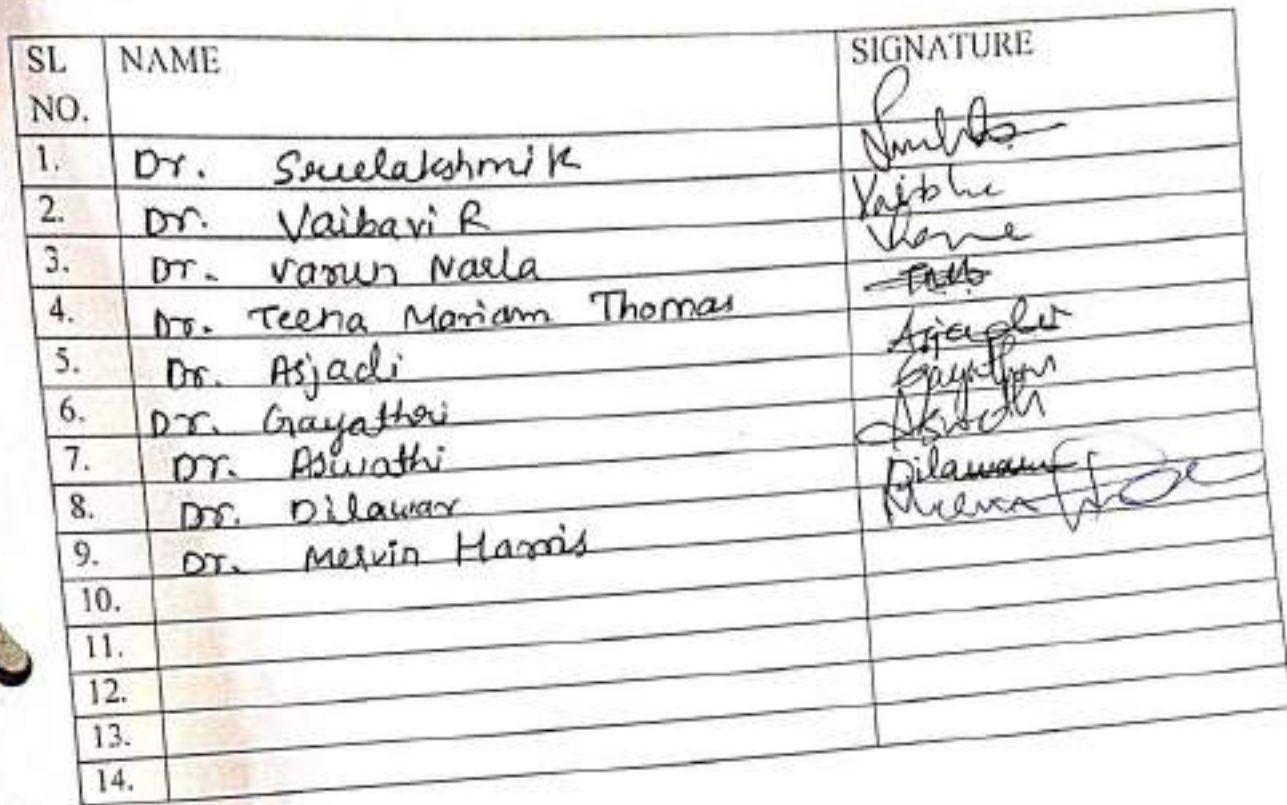 SL NO. NAME SIGNATURE
1. Dr. Sreelakshmi K
2. Dr. Vaibavi R Vaibhe
3. Dr. Varun Narla
4. Dr. Teena Mariam Thomas
5. Dr. Asjadi
6. Dr. Gayathri Gayathri
7. Dr. Aswathi
8. Dr. Dilawar Dilawar
9. Dr. Mervin Harris
10.
11.
12.
13.
14.